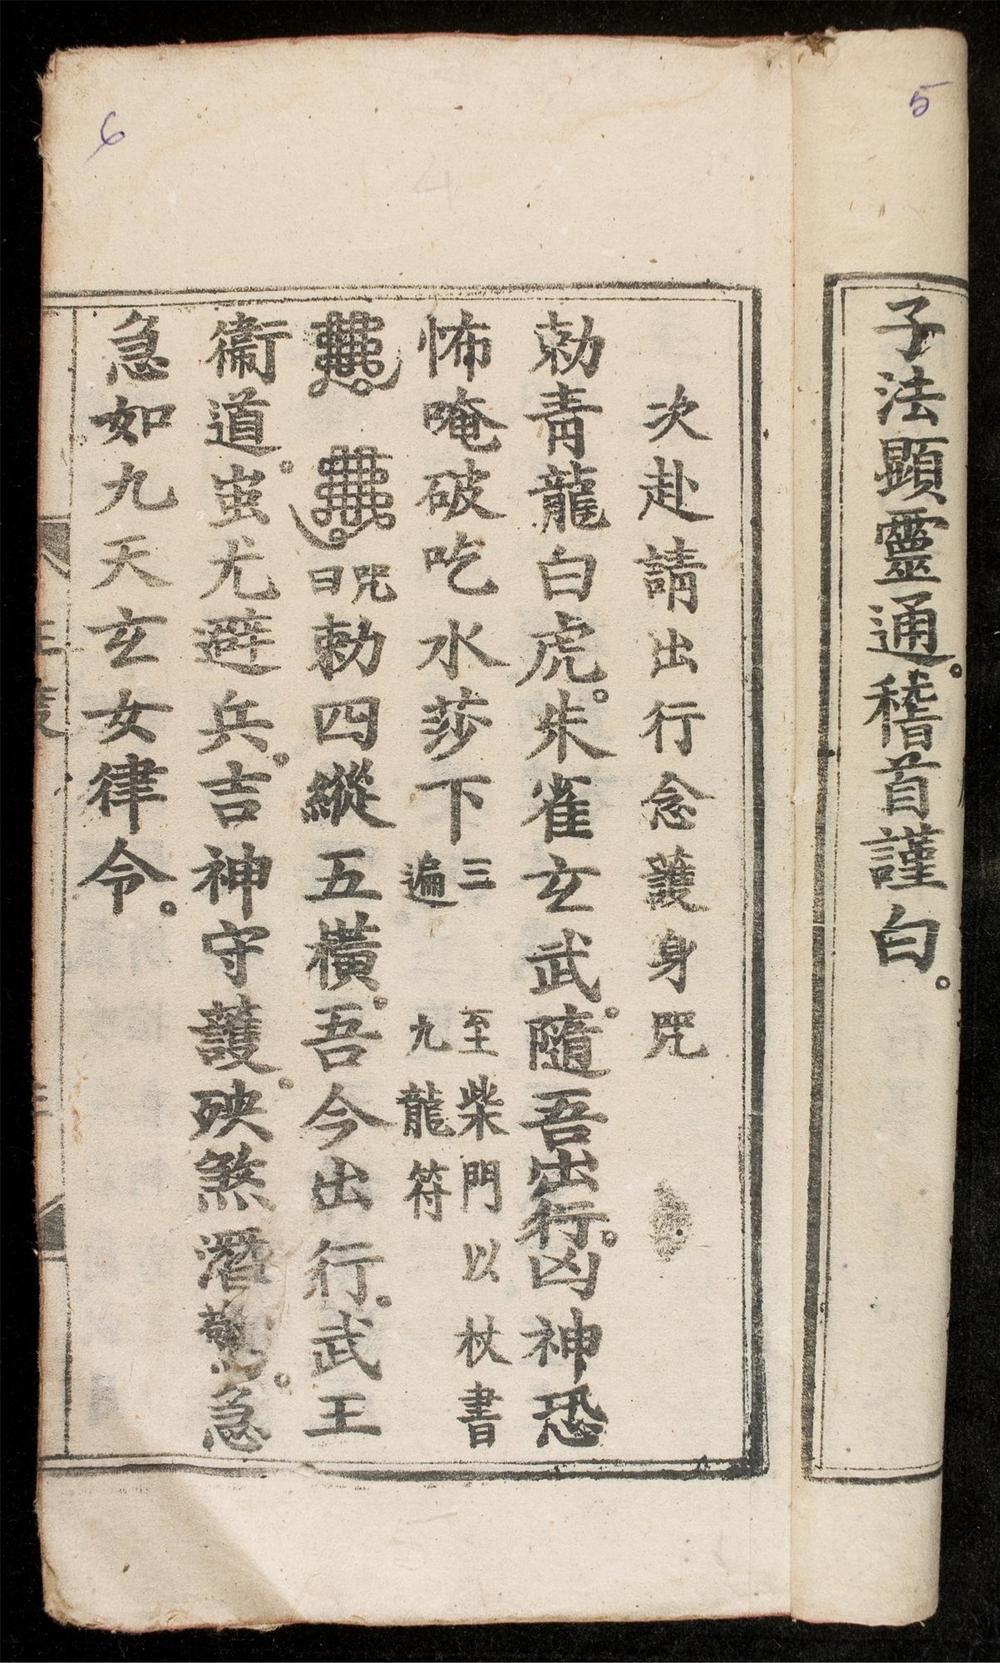 5
子法顯靈通。稽首謹白。
6
次赴請出行念護身咒
勅青龍白虎。朱雀玄武。隨吾出行。凶神恐
怖唵破吃水莎下三遍 至柴門以杖書九龍符
咒曰勅四縱五橫。吾今出行。武王
衞道。蚩尤避兵。吉神守護。殃煞潛 急
急如九天玄女律令。